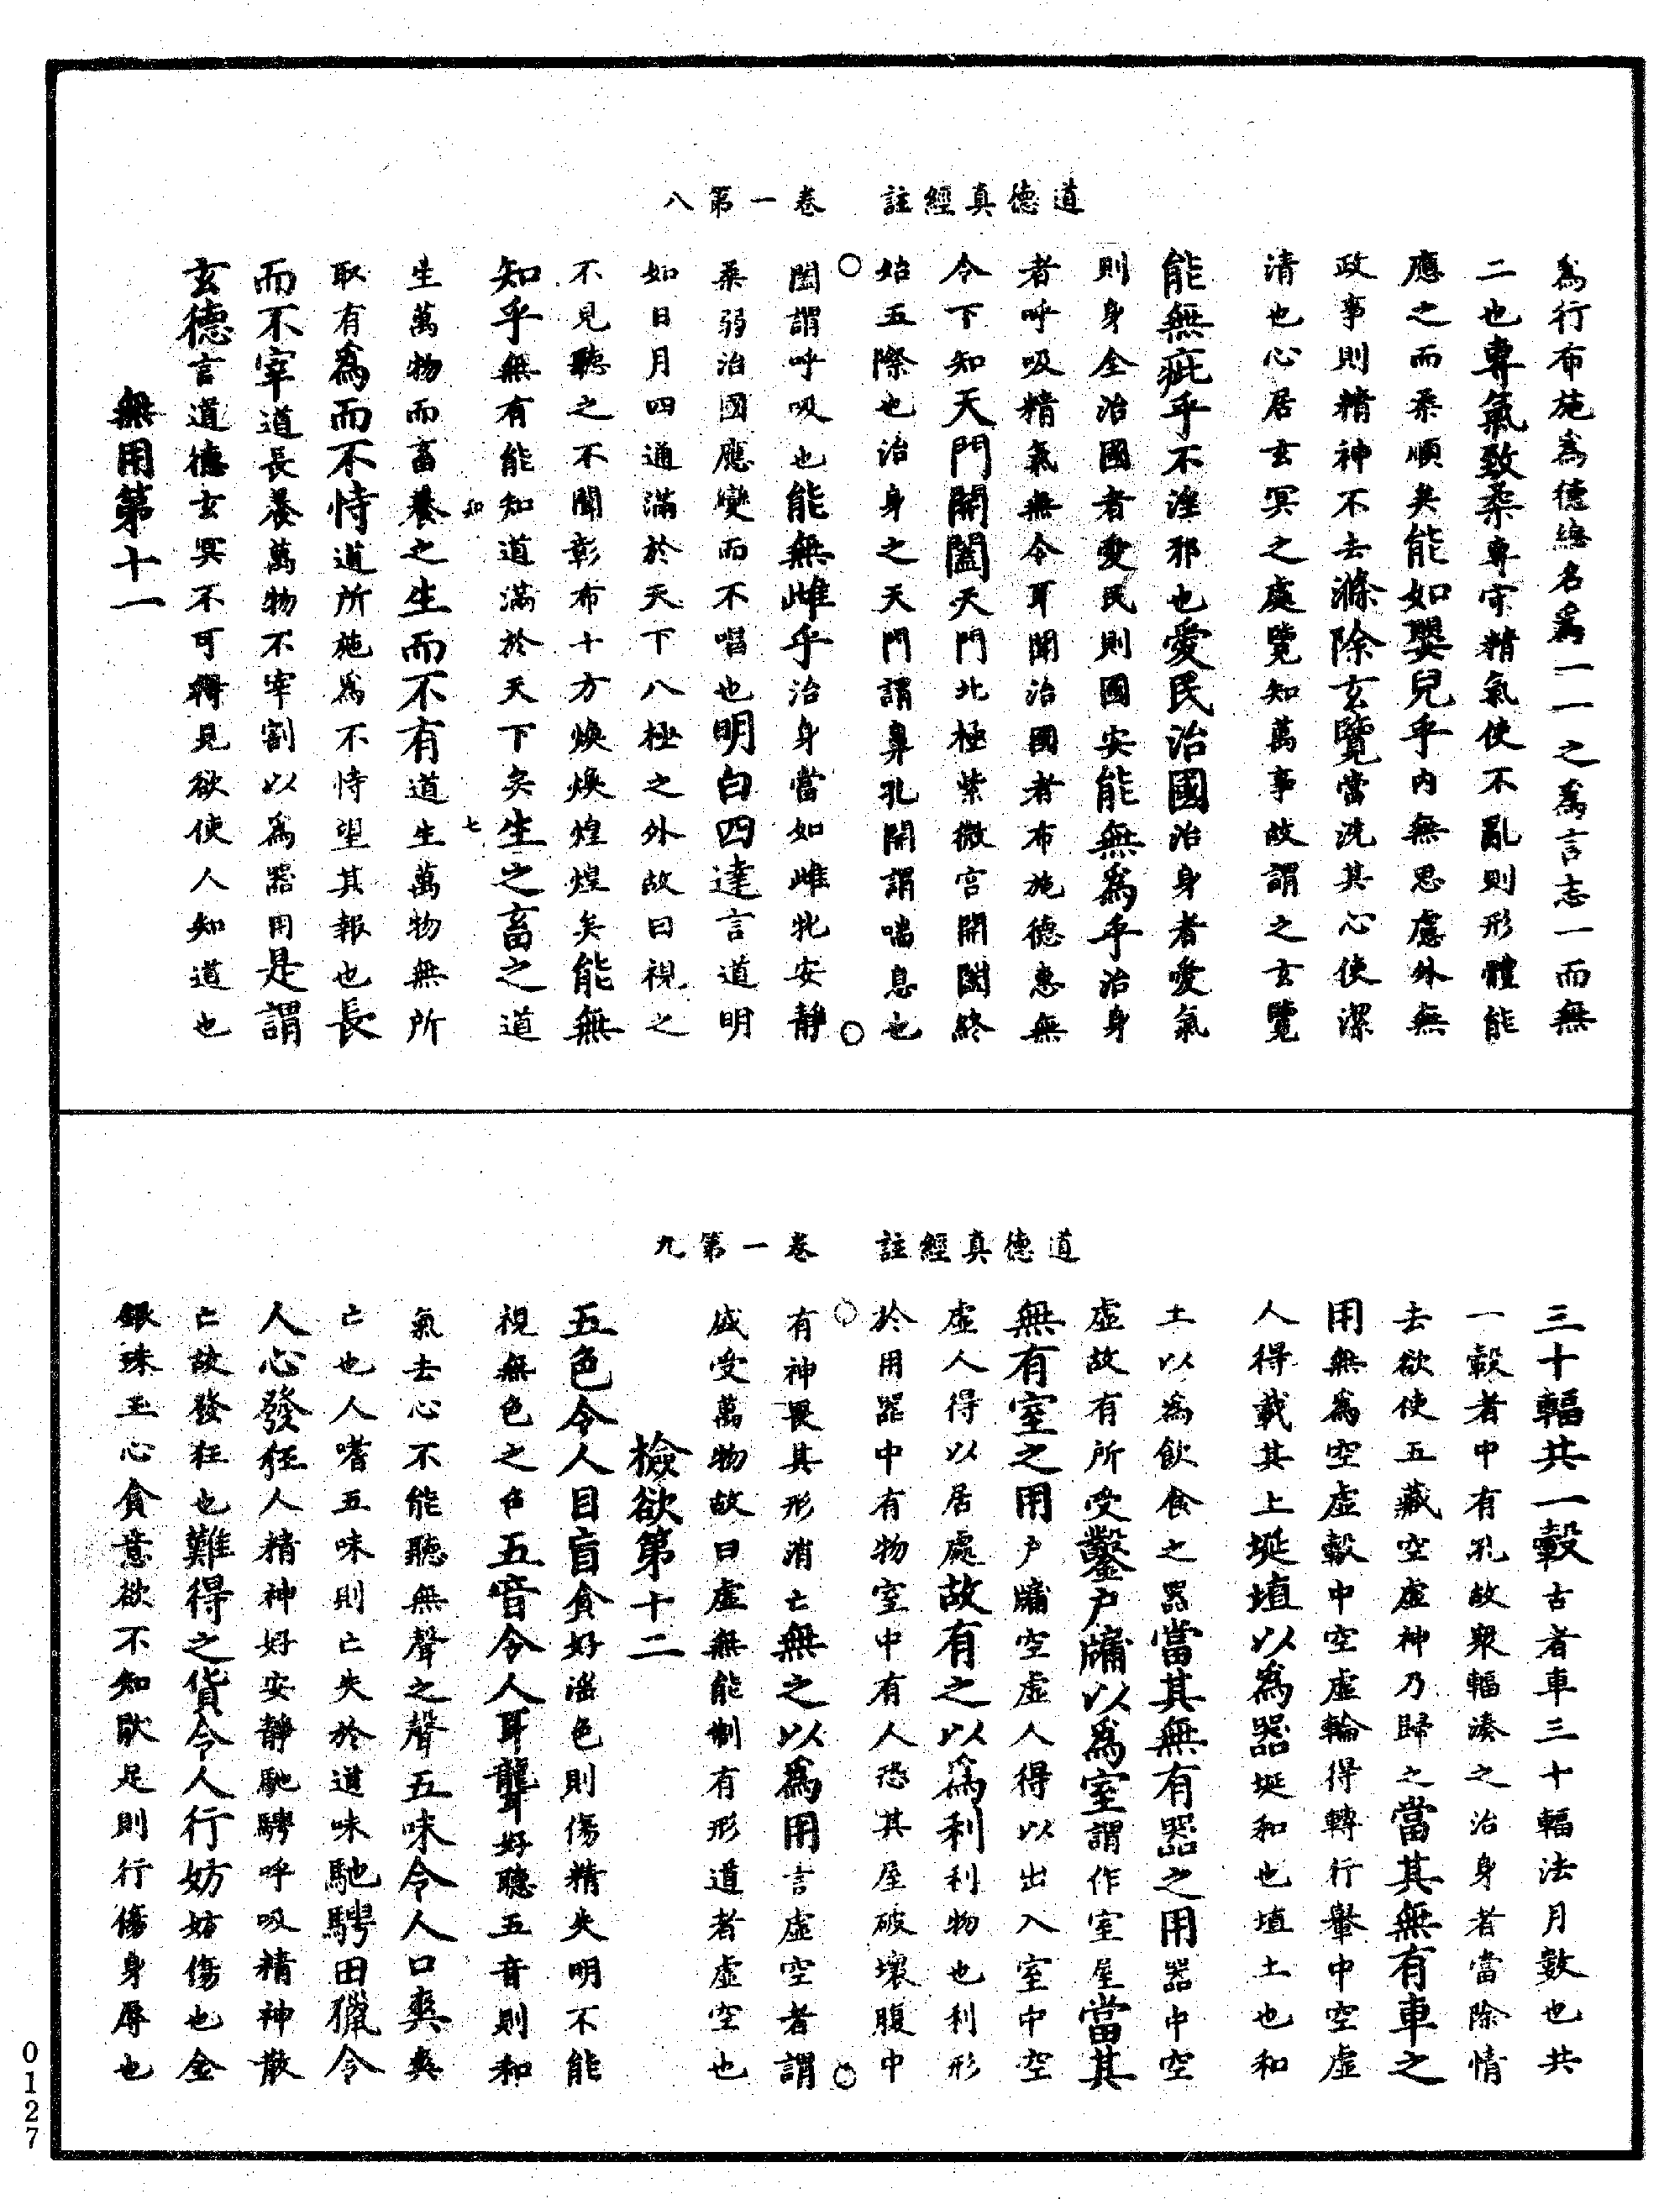 道德真經註　卷一第八
爲行布施爲德總名爲一一之爲言志一而無
二也專氣致柔專守精氣使不亂則形體能
應之而柔順矣能如嬰兒乎内無思慮外無
政事則精神不去滌除玄覽當洗其心使潔
清也心居玄冥之處覽知萬事故謂之玄覽
能無疵乎不淫邪也愛民治國治身者愛氣
則身全治國者愛民則國安能無爲乎治身
者呼吸精氣無令耳聞治國者布施德惠無
令下知天門開闔天門北極紫微宫開闔終
始五際也治身之天門謂鼻孔開謂喘息也
闔謂呼吸也能無雌乎治身當如雌牝安靜
柔弱治國應變而不唱也明白四達言道明
如日月四通滿於天下八極之外故曰視之
不見聽之不聞彰布十方煥煥煌煌矣能無
知乎無有能知道滿於天下矣生之畜之道
知　七
生萬物而畜養之生而不有道生萬物無所
取有爲而不恃道所施爲不恃望其報也長
而不宰道長養萬物不宰割以爲器用是謂
玄德言道德玄冥不可得見欲使人知道也
無用第十一
道德真經註　卷一第九
三十輻共一轂古者車三十輻法月數也共
一轂者中有孔故衆輻湊之治身者當除情
去欲使五藏空虛神乃歸之當其無有車之
用無爲空虛轂中空虛輪得轉行轝中空虛
人得載其上埏埴以爲器埏和也埴土也和
土以爲飲食之器當其無有器之用器中空
虛故有所受鑿户牖以爲室謂作室屋當其
無有室之用户牖空虛人得以出入室中空
虛人得以居處故有之以爲利利物也利形
於用器中有物室中有人恐其屋破壞腹中
有神畏其形消亡無之以爲用言虛空者謂
盛受萬物故曰虛無能制有形道者虛空也
檢欲第十二
五色令人目盲貪好淫色則傷精失明不能
視無色之色五音令人耳聾好聽五音則和
氣去心不能聽無聲之聲五味令人口爽爽
亡也人嗜五味則亡失於道味馳騁田獵令
人心發狂人精神好安靜馳騁呼吸精神散
亡故發狂也難得之貨令人行妨妨傷也金
銀珠玉心貪意欲不知猒足則行傷身辱也
0127